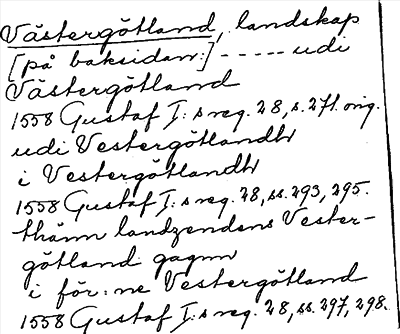 Västergötland, landskap
[på baksidan:] ----- udi
Västergötland
1558 Gustaf I:s reg. 28, s. 271. orig.
udi Vestergötlandh
i Vestergötlandh
1558 Gustaf I:s reg. 28, ss. 293, 295.
thänn landzendens Vester-
götland gagnn
i för:ne Vestergötland
1558 Gustaf I:s reg. 28, ss. 297, 298.